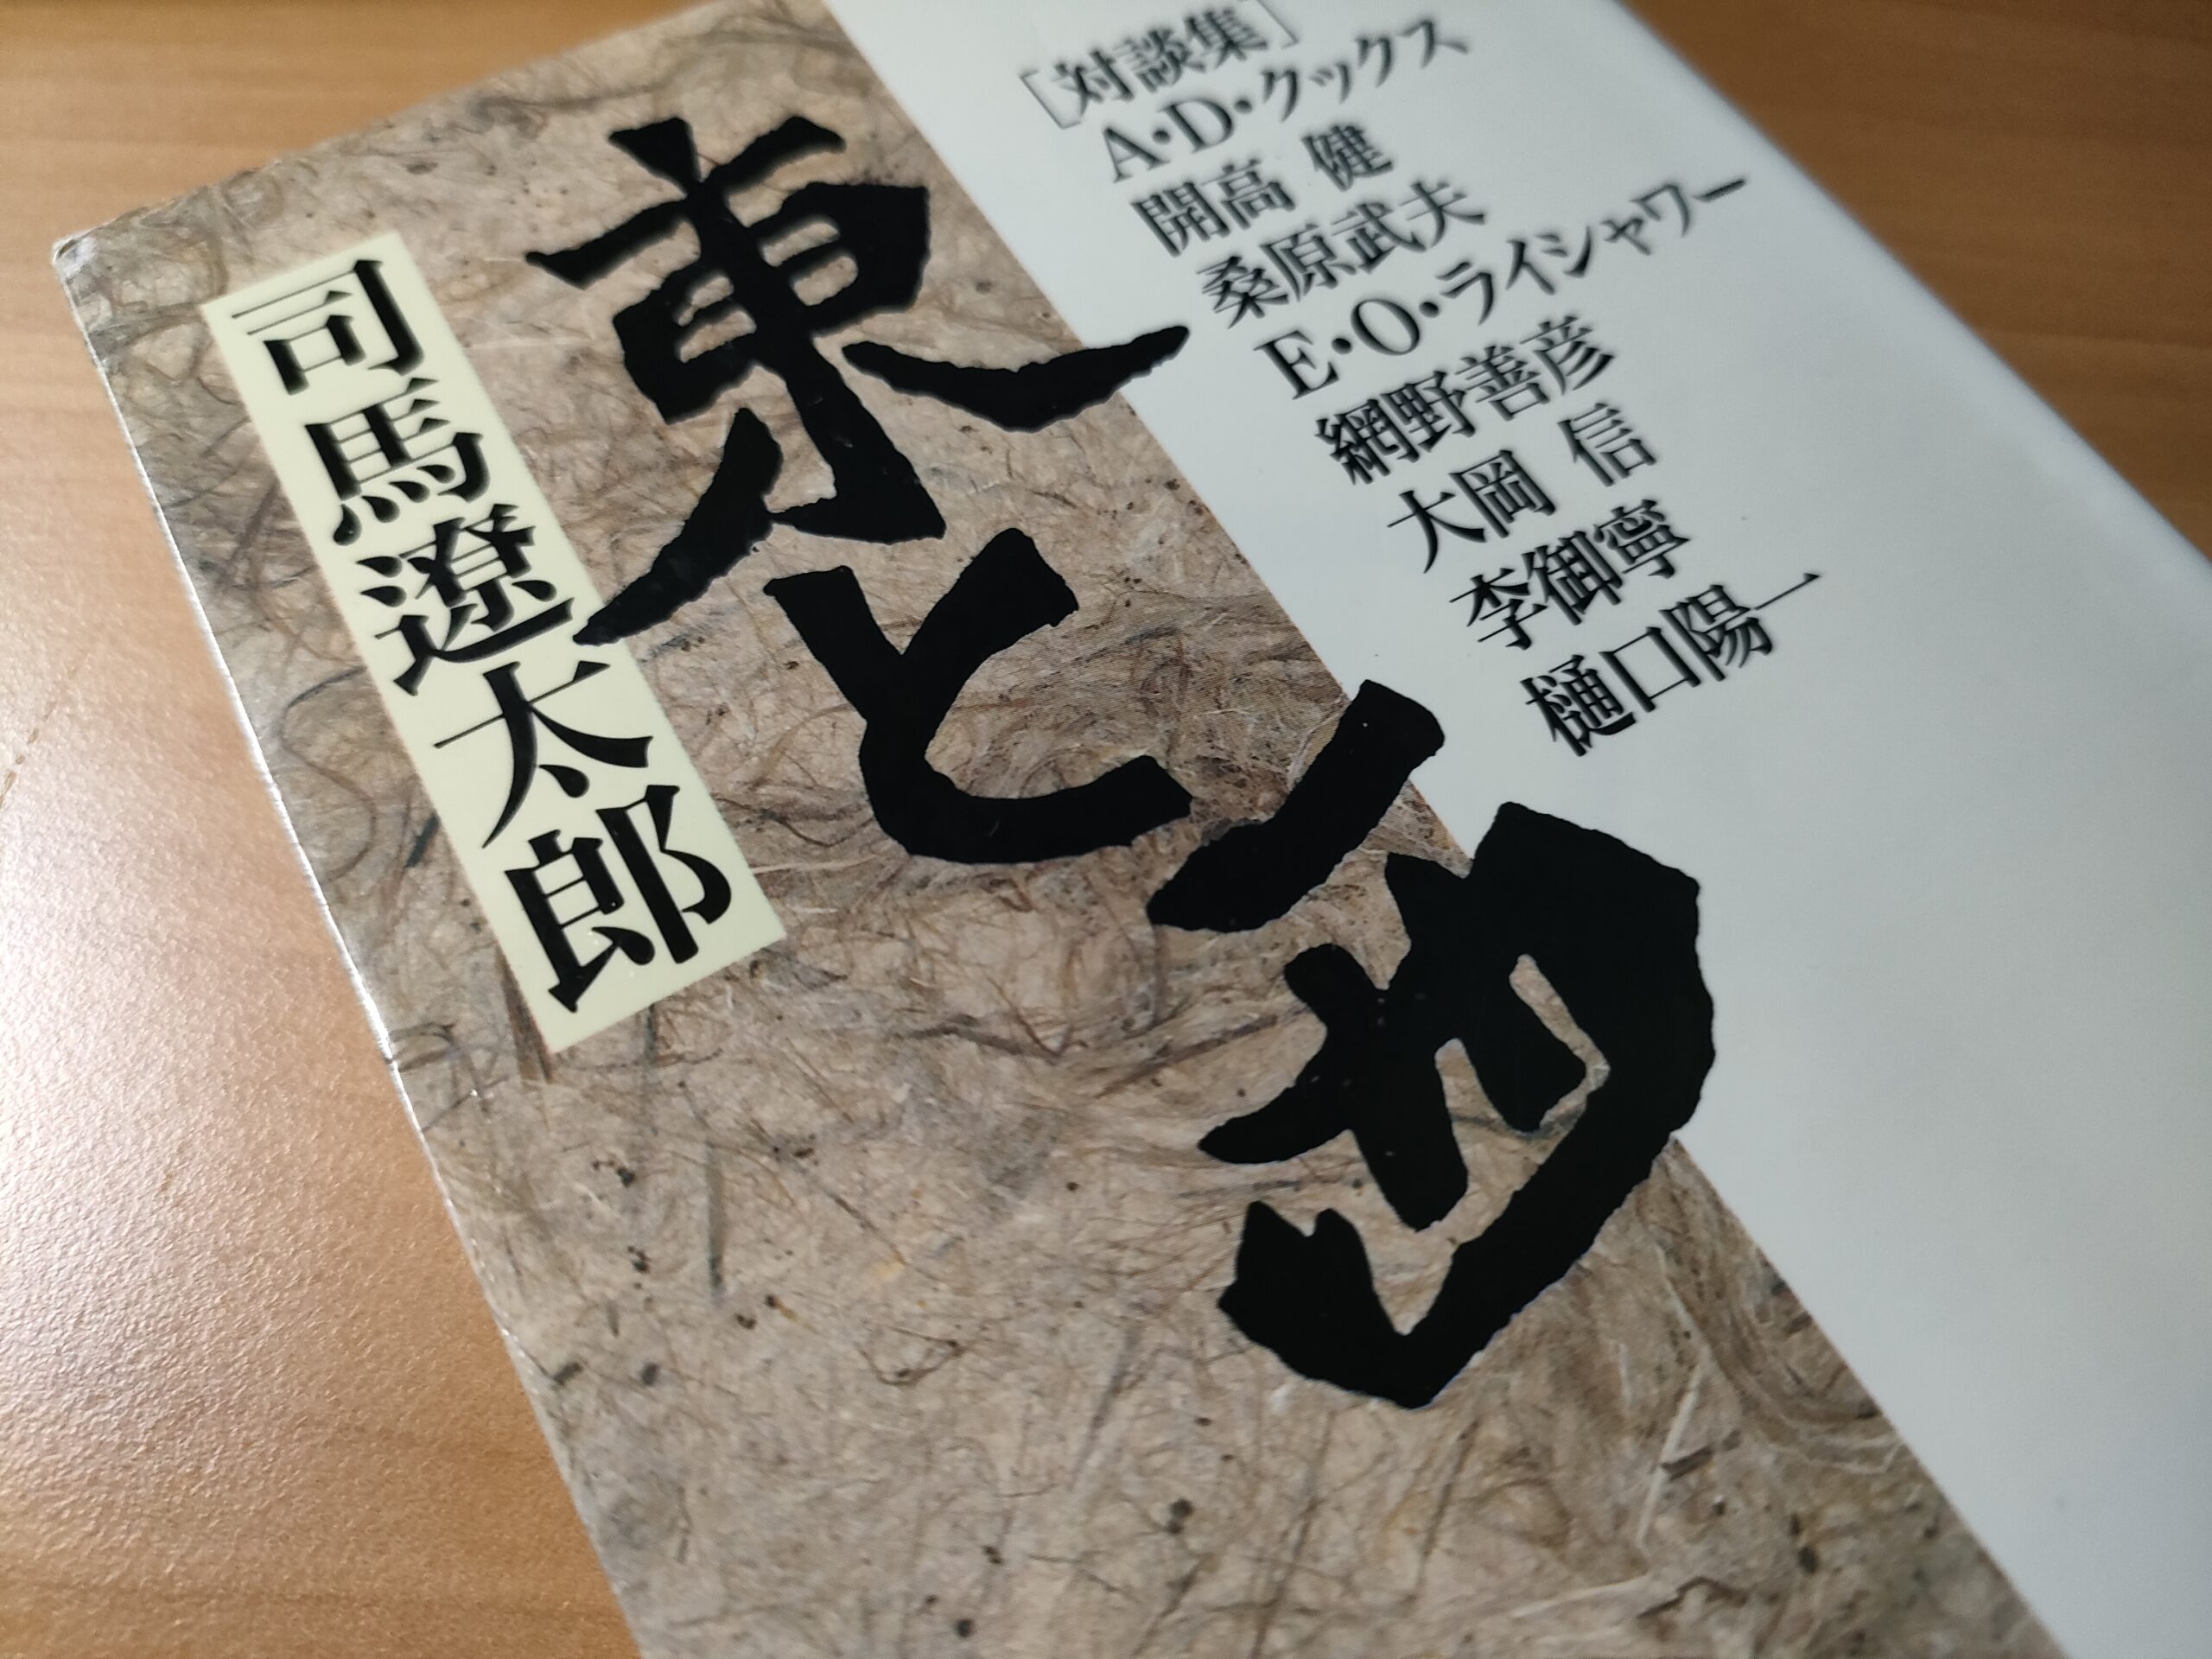 [対談集]
A・D・クックス
開高 健
桑原武夫
E・O・ライシャワー
網野善彦
大岡 信
李御寧
樋口陽一
東と西
司馬遼太郎